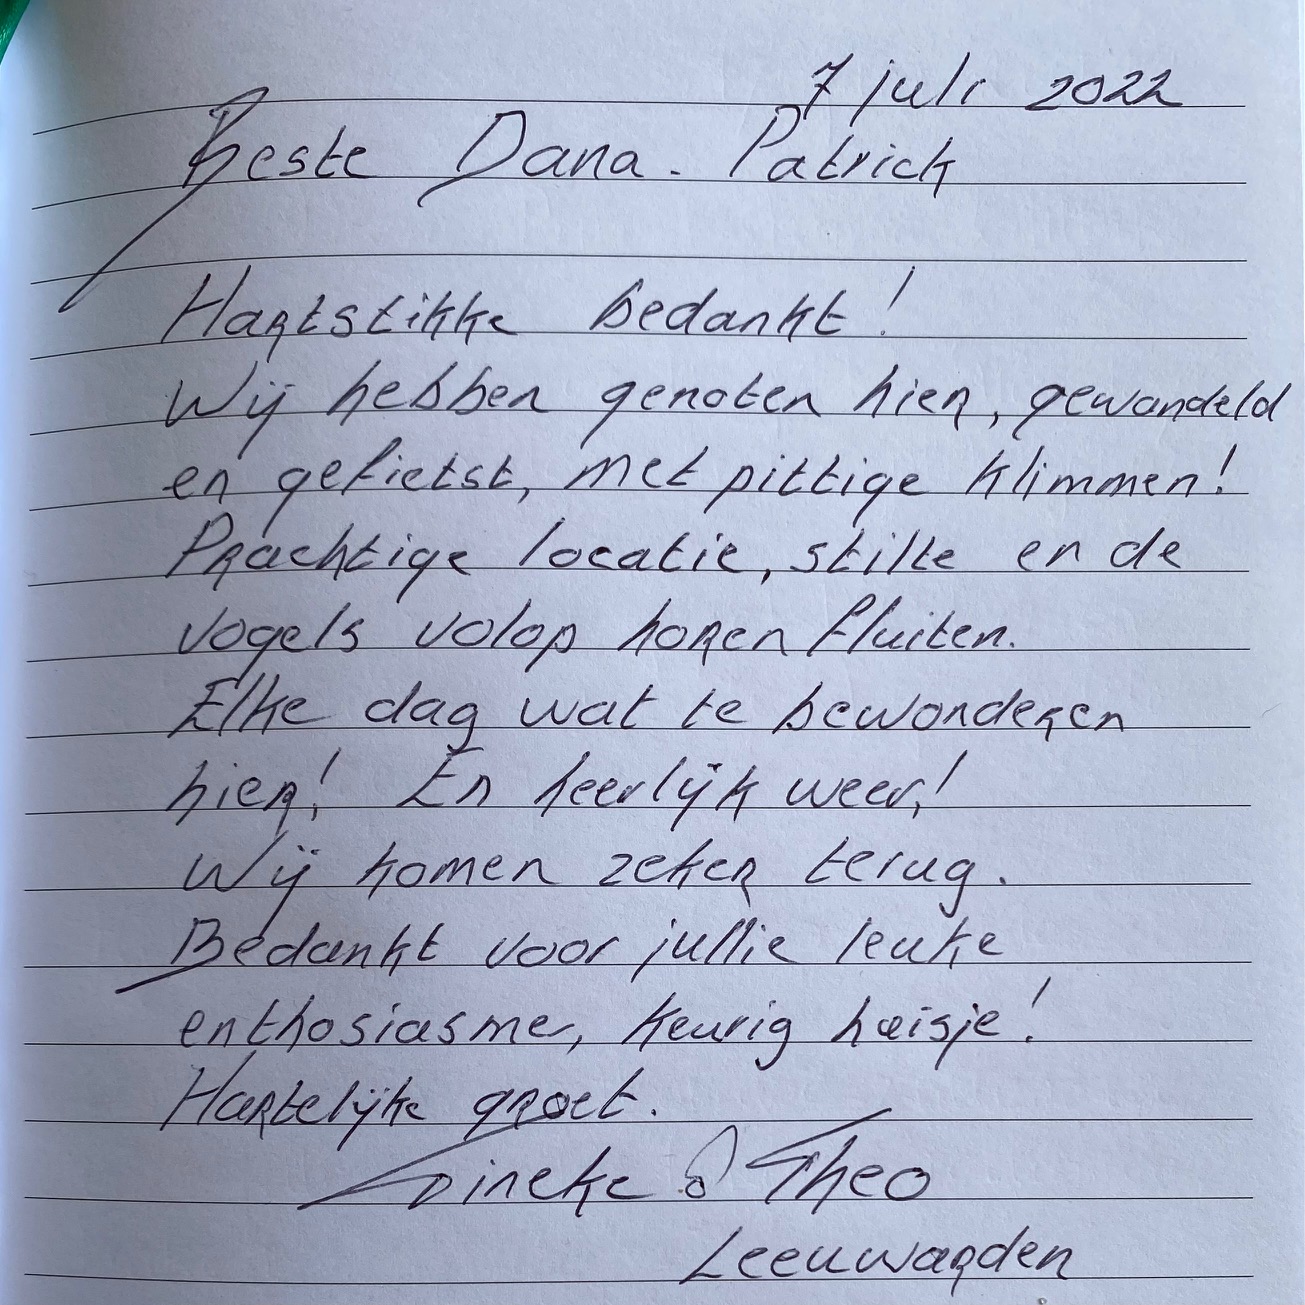 7 juli 2022
Beste Dana. Patrick
Hartstikke bedankt!
Wij hebben genoten hier, gewandeld
en gefietst, met pittige klimmen!
Prachtige locatie, stilte en de
vogels volop horen fluiten.
Elke dag wat te bewonderen
hier! En heerlijk weer!
Wij komen zeker terug.
Bedankt voor jullie leuke
enthosiasme, keurig huisje!
Hartelijke groet.
Tineke & Theo
Leeuwarden